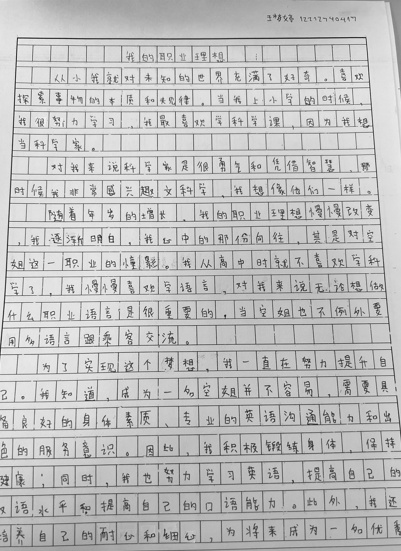 王 12212740417
我的职业理想
从小我就对未知的世界充满了好奇。喜欢
探索事物的本质和规律。当我上小学的时候,
我很努力学习,我最喜欢学科学课,因为我想
当科学家。
对我来说科学家是很勇气和凭借智慧,那
时候我非常感兴趣文科学,我想像他们一样。
随着年岁的增长,我的职业理想慢慢改变
,我逐渐明白,我心中的那份向往,其是对空
姐这一职业的憧憬。我从高中时就不喜欢学科
学了,我慢慢喜欢学语言,对我来说无论想做
什么职业语言是很重要的。当空姐也不例外要
用多语言跟乘客交流。
为了实现这个梦想,我一直在努力提升自
己。我知道,成为一名空姐并不容易,需要具
备良好的身体素质、专业的英语沟通能力和出
色的服务意识。因此,我积极锻练身体,保持
健康;同时,我也努力学习英语,提高自己的
汉语水平和提高自己的口语能力。此外,我还
培养自己的耐心和细心,为将来成为一名优秀